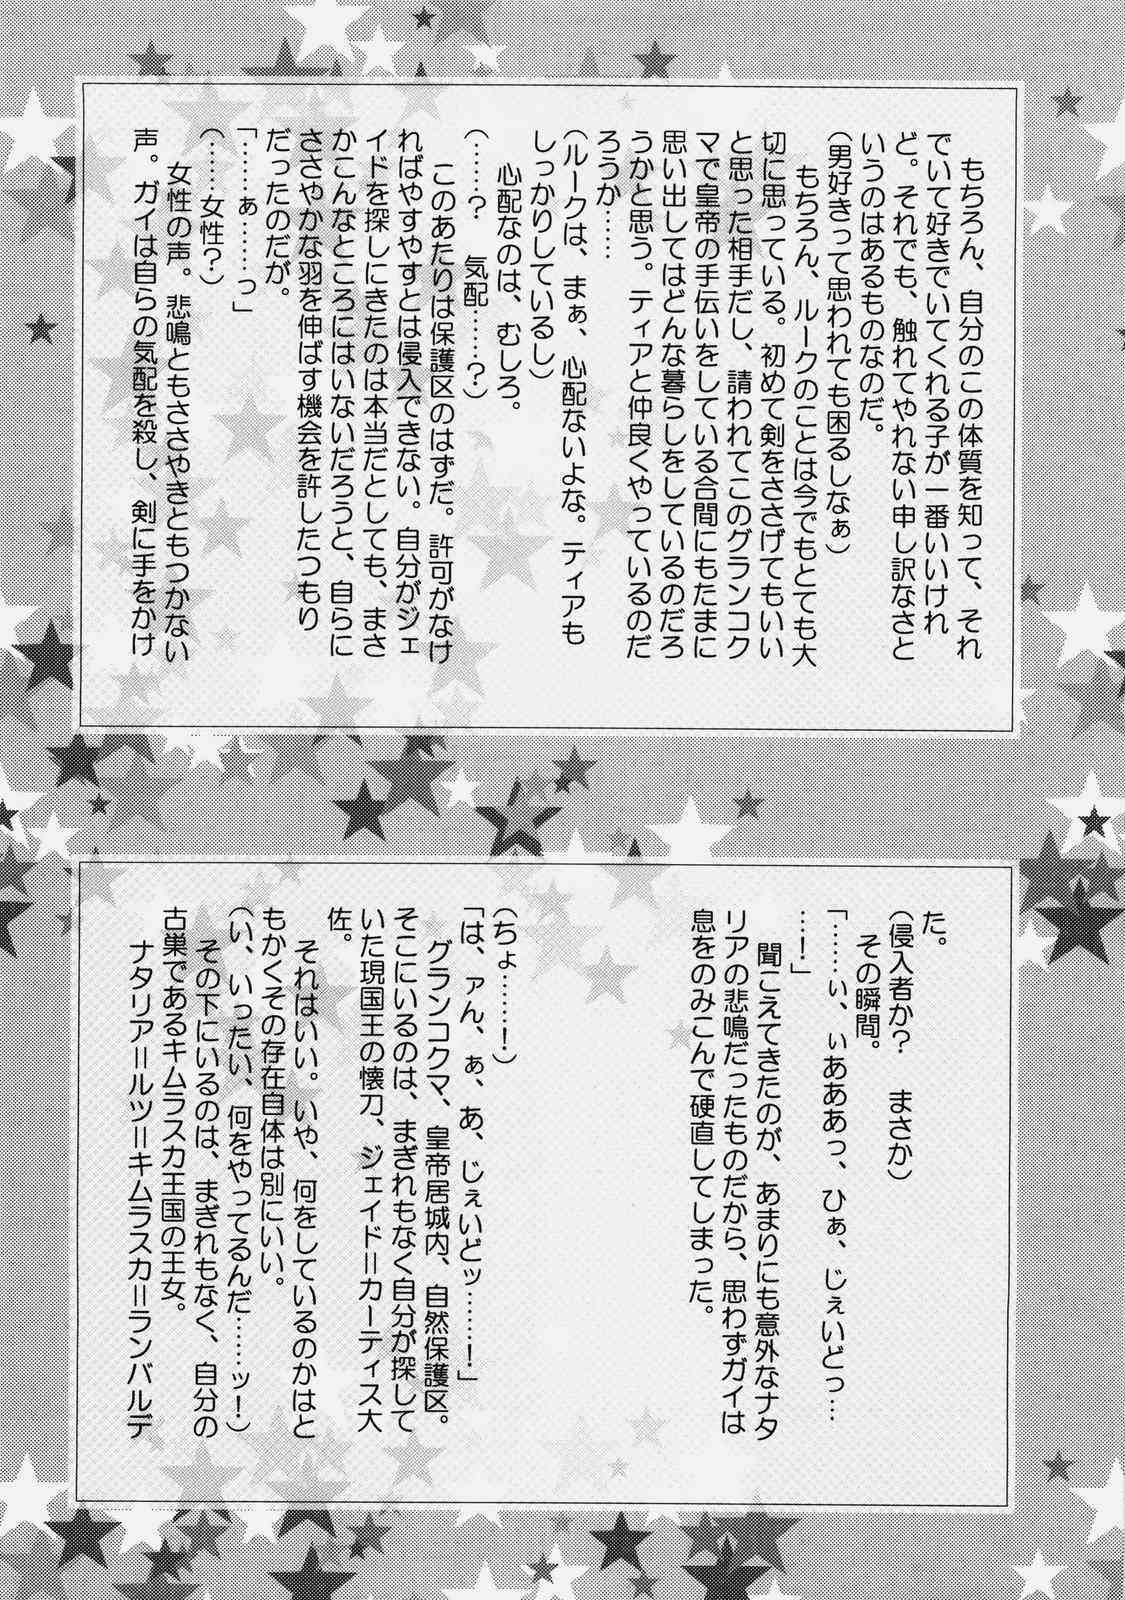 もちろん、自分のこの体質を知って、それ
でいて好きでいてくれる子が一番いいけれ
ど。それでも、触れてやれない申し訳なさと
いうのはあるものなのだ。
（男好きって思われても困るしなぁ）
　もちろん、ルークのことは今でもとても大
切に思っている。初めて剣をささげてもいい
と思った相手だし、請われてこのグランコク
マで皇帝の手伝いをしている合間にもたまに
思い出してはどんな暮らしをしているのだろ
うかと思う。ティアと仲良くやっているのだ
ろうか……
（ルークは、まぁ、心配ないよな。ティアも
しっかりしているし）
　心配なのは、むしろ。
（……？　気配……？）
　このあたりは保護区のはずだ。許可がなけ
ればやすやすとは侵入できない。自分がジェ
イドを探しにきたのは本当だとしても、まさ
かこんなところにはいないだろうと、自らに
ささやかな羽を伸ばす機会を許したつもり
だったのだが。
「……ぁ……っ」
（……女性？）
　女性の声。悲鳴ともささやきともつかない
声。ガイは自らの気配を殺し、剣に手をかけ
た。
（侵入者か？　まさか）
　その瞬間。
「……ぃ、ぃあああっ、ひぁ、じぇいどっ…
…！」
　聞こえてきたのが、あまりにも意外なナタ
リアの悲鳴だったものだから、思わずガイは
息をのみこんで硬直してしまった。
（ちょ……！）
「は、ァん、ぁ、あ、じぇいどッ……！」
　グランコクマ、皇帝居城内、自然保護区。
そこにいるのは、まぎれもなく自分が探して
いた現国王の懐刀、ジェイド＝カーティス大
佐。
　それはいい。いや、何をしているのかはと
もかくその存在自体は別にいい。
（い、いったい、何をやってるんだ……ッ！）
　その下にいるのは、まぎれもなく、自分の
古巣であるキムラスカ王国の王女。
　ナタリア＝ルツ＝キムラスカ＝ランバルデ